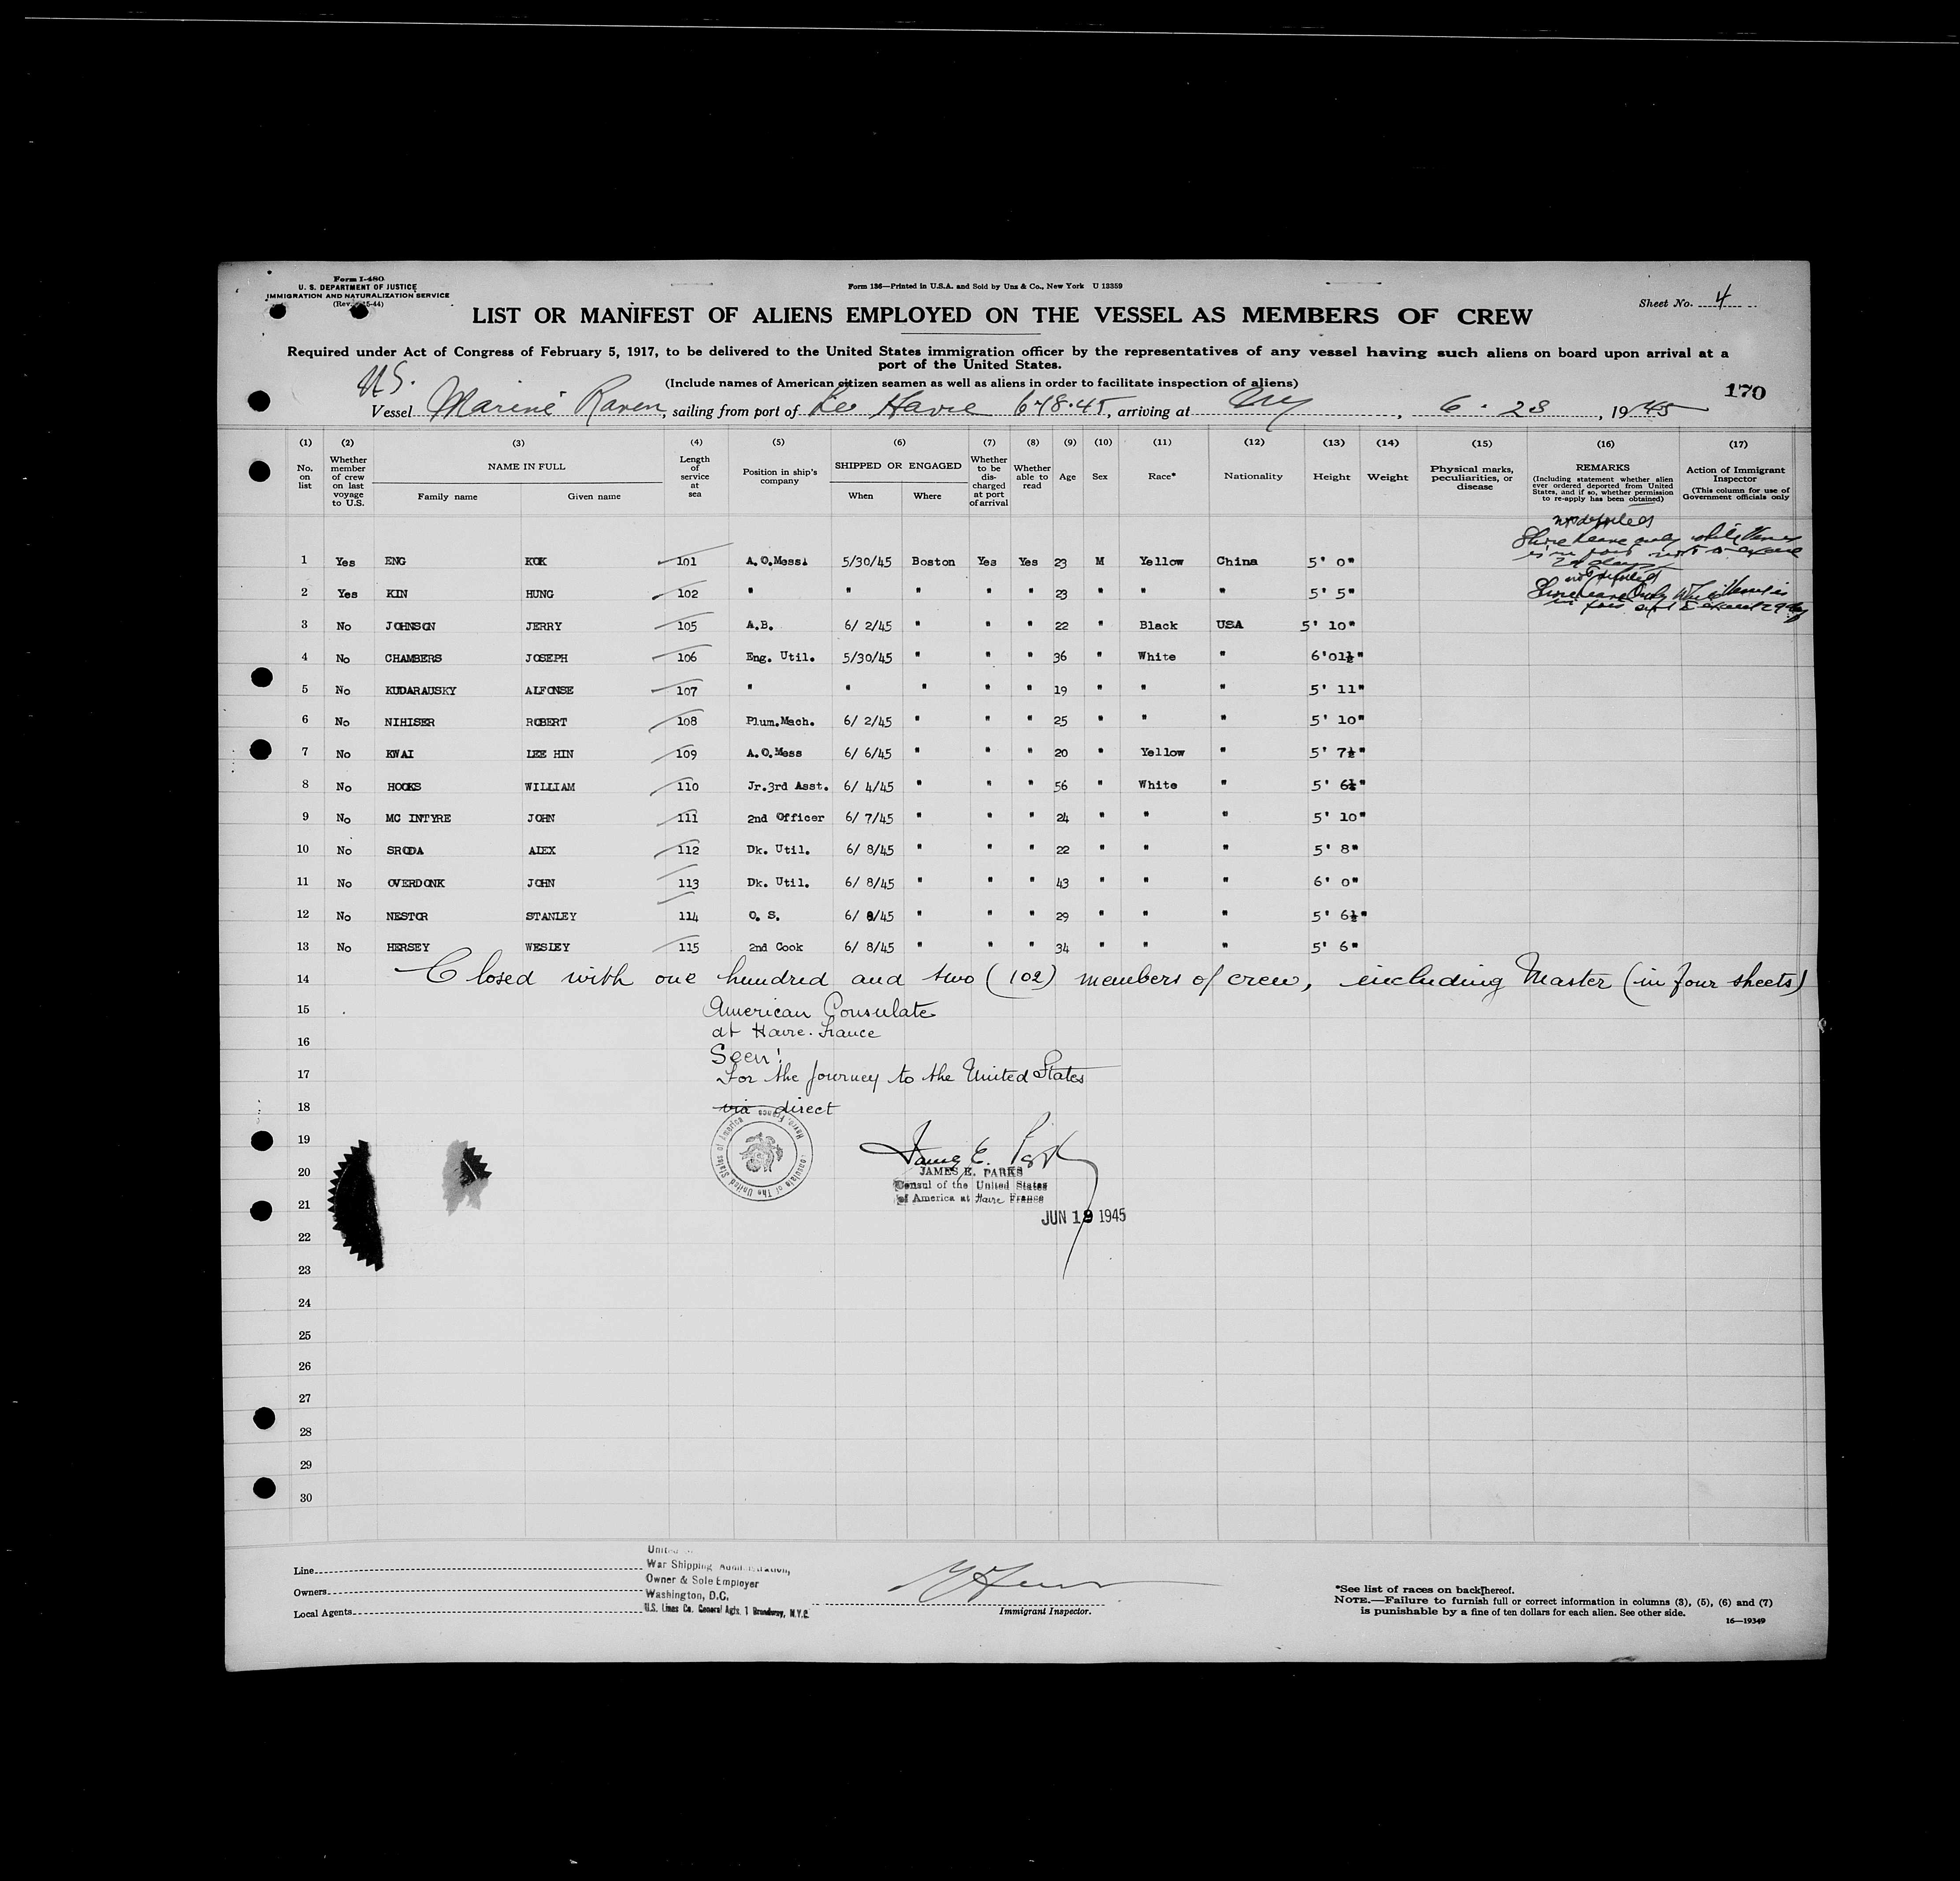 Form I-480
U. S. DEPARTMENT OF JUSTICE
IMMIGRATION AND NATURALIZATION SERVICE
Form 136—Printed in U.S.A. and Sold by Unz & Co., New York U 13359
Sheet No. 4
LIST OR MANIFEST OF ALIENS EMPLOYED ON THE VESSEL AS MEMBERS OF CREW
Required under Act of Congress of February 5, 1917, to be delivered to the United States immigration officer by the representatives of any vessel having such aliens on board upon arrival at a
port of the United States.
(Include names of American citizen seamen as well as aliens in order to facilitate inspection of aliens)
170
Vessel Marine Raven, sailing from port of Le Havre, arriving at NY, 6-28, 1945
(1) (2) (3) (4) (5) (6) (7) (8) (9) (10) (11) (12) (13) (14) (15) (16) (17)
No. on list
Whether member of crew on last voyage to U.S.
NAME IN FULL
Family name Given name
Length of service at sea
Position in ship's company
SHIPPED OR ENGAGED
When Where
Whether to be discharged at port of arrival
Whether able to read
Age Sex Race* Nationality Height Weight
Physical marks, peculiarities, or disease
REMARKS
(Including statement whether alien ever ordered deported from United States, and if so, whether permission to re-apply has been obtained)
Action of Immigrant Inspector
(This column for use of Government officials only
1 Yes ENG KOK 101 A.O.Mess. 5/30/45 Boston Yes Yes 23 M Yellow China 5' 0"
2 Yes KIN HUNG 102 " " " " " 23 " " " 5' 5"
3 No JOHNSON JERRY 105 A.B. 6/ 2/45 " " " 22 " Black USA 5' 10"
4 No CHAMBERS JOSEPH 106 Eng. Util. 5/30/45 " " " 36 " White " 6'01½"
5 No KUDARAUSKY ALFONSE 107 " " " " " 19 " " " 5' 11"
6 No NIHISER ROBERT 108 Plum.Mach. 6/ 2/45 " " " 25 " " " 5' 10"
7 No KWAI LEE HIN 109 A.O.Mess 6/ 6/45 " " " 20 " Yellow " 5' 7½"
8 No HOOKS WILLIAM 110 Jr.3rd Asst. 6/ 4/45 " " " 56 " White " 5' 6½"
9 No MC INTYRE JOHN 111 2nd Officer 6/ 7/45 " " " 24 " " " 5' 10"
10 No SRODA ALEX 112 Dk. Util. 6/ 8/45 " " " 22 " " " 5' 8"
11 No OVERDONK JOHN 113 Dk. Util. 6/ 8/45 " " " 43 " " " 6' 0"
12 No NESTOR STANLEY 114 O. S. 6/ 8/45 " " " 29 " " " 5' 6½"
13 No HERSEY WESLEY 115 2nd Cook 6/ 8/45 " " " 34 " " " 5' 6"
14 Closed with one hundred and two (102) members of crew, including Master (in four sheets)
15 American Consulate
at Havre. France
16 Seen:
17 For the journey to the United States
18 via direct
Consulate of The United States of America Havre, France
19
20 JAMES E. PARKS
Consul of the United States
21 of America at Havre France
JUN 19 1945
22
23
24
25
26
27
28
29
30
Line
Owners
Local Agents
War Shipping Administration,
Owner & Sole Employer
Washington, D.C.
U.S. Lines Co. General Agts. 1 Broadway, N.Y.C.
Immigrant Inspector.
*See list of races on back thereof.
NOTE.—Failure to furnish full or correct information in columns (3), (5), (6) and (7)
is punishable by a fine of ten dollars for each alien. See other side.
16—19349